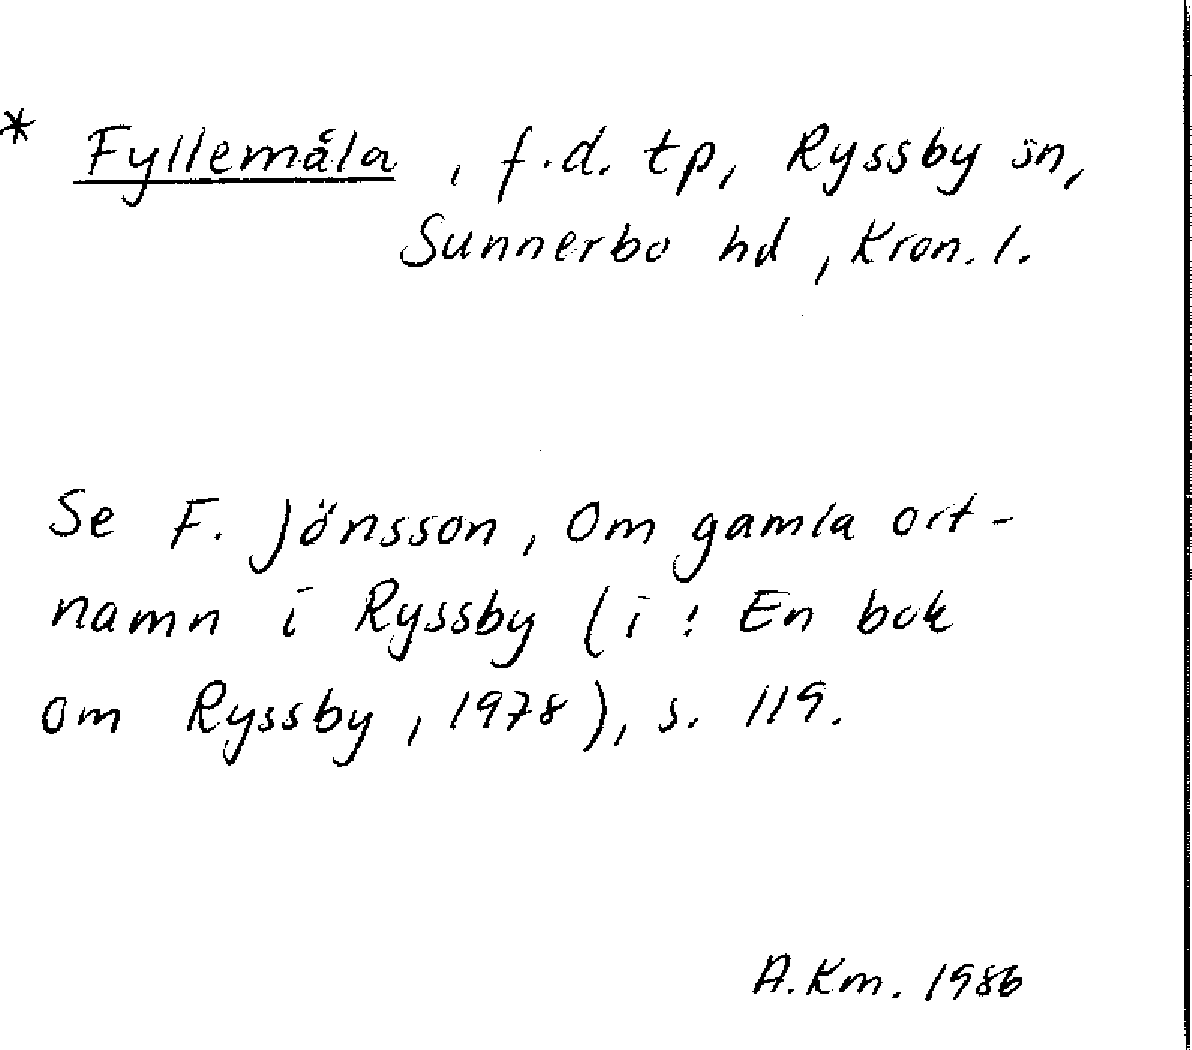 * Fyllemåla, f.d. tp, Ryssby sn,
Sunnerbo hd, Kron. l.
Se F. Jönsson, Om gamla ort-
namn i Ryssby (i: En bok
om Ryssby, 1978), s. 119.
A.Km. 1986